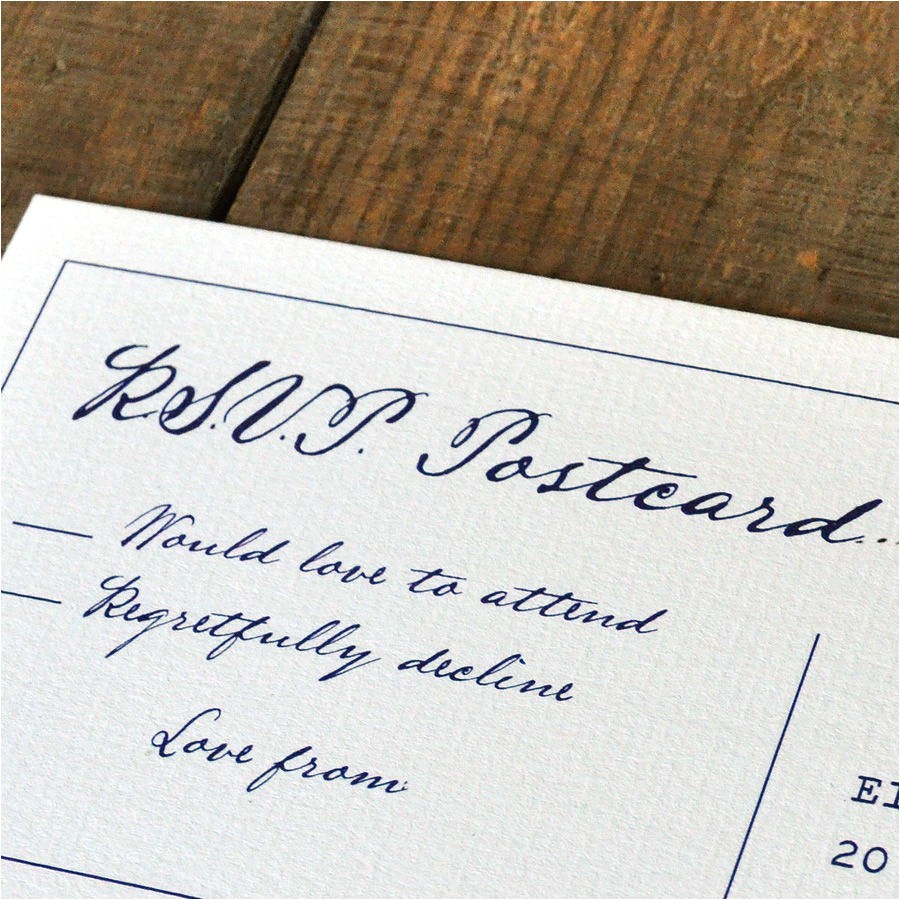 R.S.V.P. Postcard...
Would love to attend
Regretfully decline
Love from
20